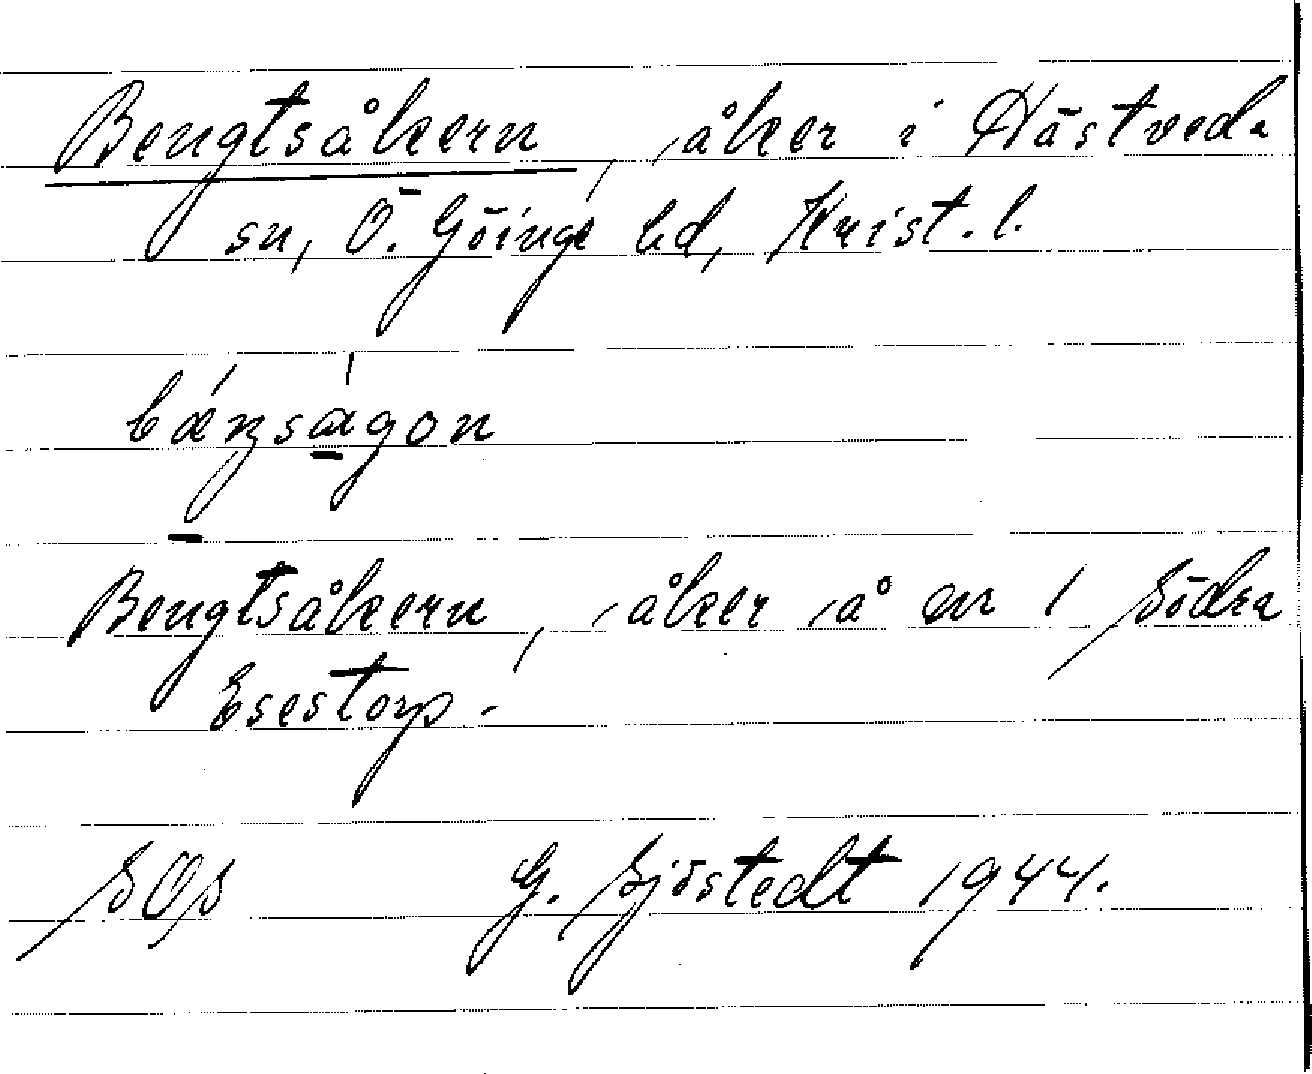 Bengtsåkern, åker i Hästveda
sn, Ö. Göinge hd, Krist. l.
bǽnsågon
Bengtsåkern, åker å nr 1 Södra
Esestorp.
SOS G. Sjöstedt 1944.